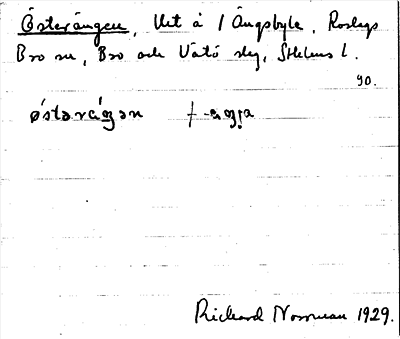 Österängen, Utt å / Ängsbyle, Roslags
Bro sn, Bro och Vätö skg, Sthlms l.
90.
østəräŋən
Rickard Norrman 1929.